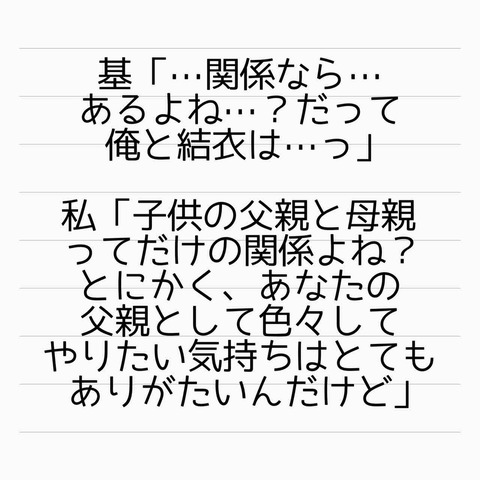 基「…関係なら…
あるよね…？だって
俺と結衣は…っ」
私「子供の父親と母親
ってだけの関係よね？
とにかく、あなたの
父親として色々して
やりたい気持ちはとても
ありがたいんだけど」